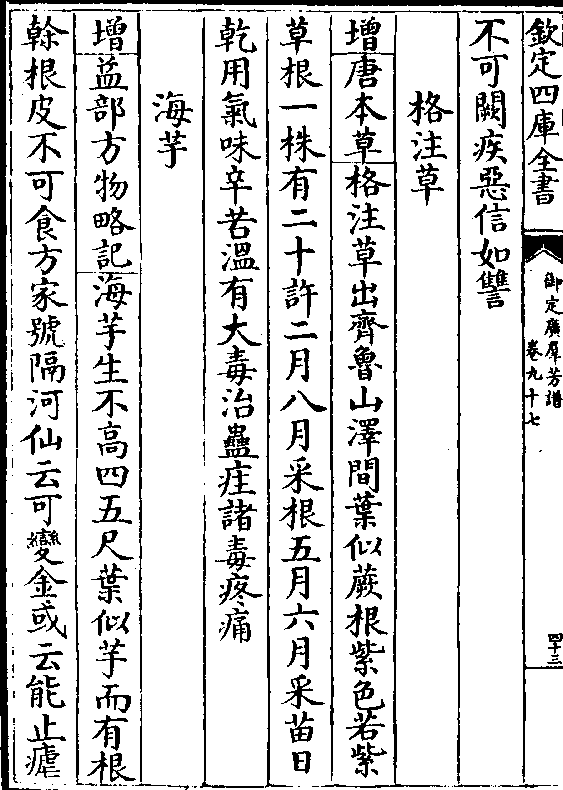 欽定四庫全書
御定廣羣芳譜
卷九十七
四十三
不可闕疾惡信如讐
格注草
增唐本草格注草出齊魯山澤間葉似蕨根紫色若紫
草根一株有二十許二月八月采根五月六月采苗日
乾用氣味辛苦溫有大毒治蠱疰諸毒疼痛
海芋
增益部方物略記海芋生不高四五尺葉似芋而有根
榦根皮不可食方家號隔河仙云可變金或云能止瘧